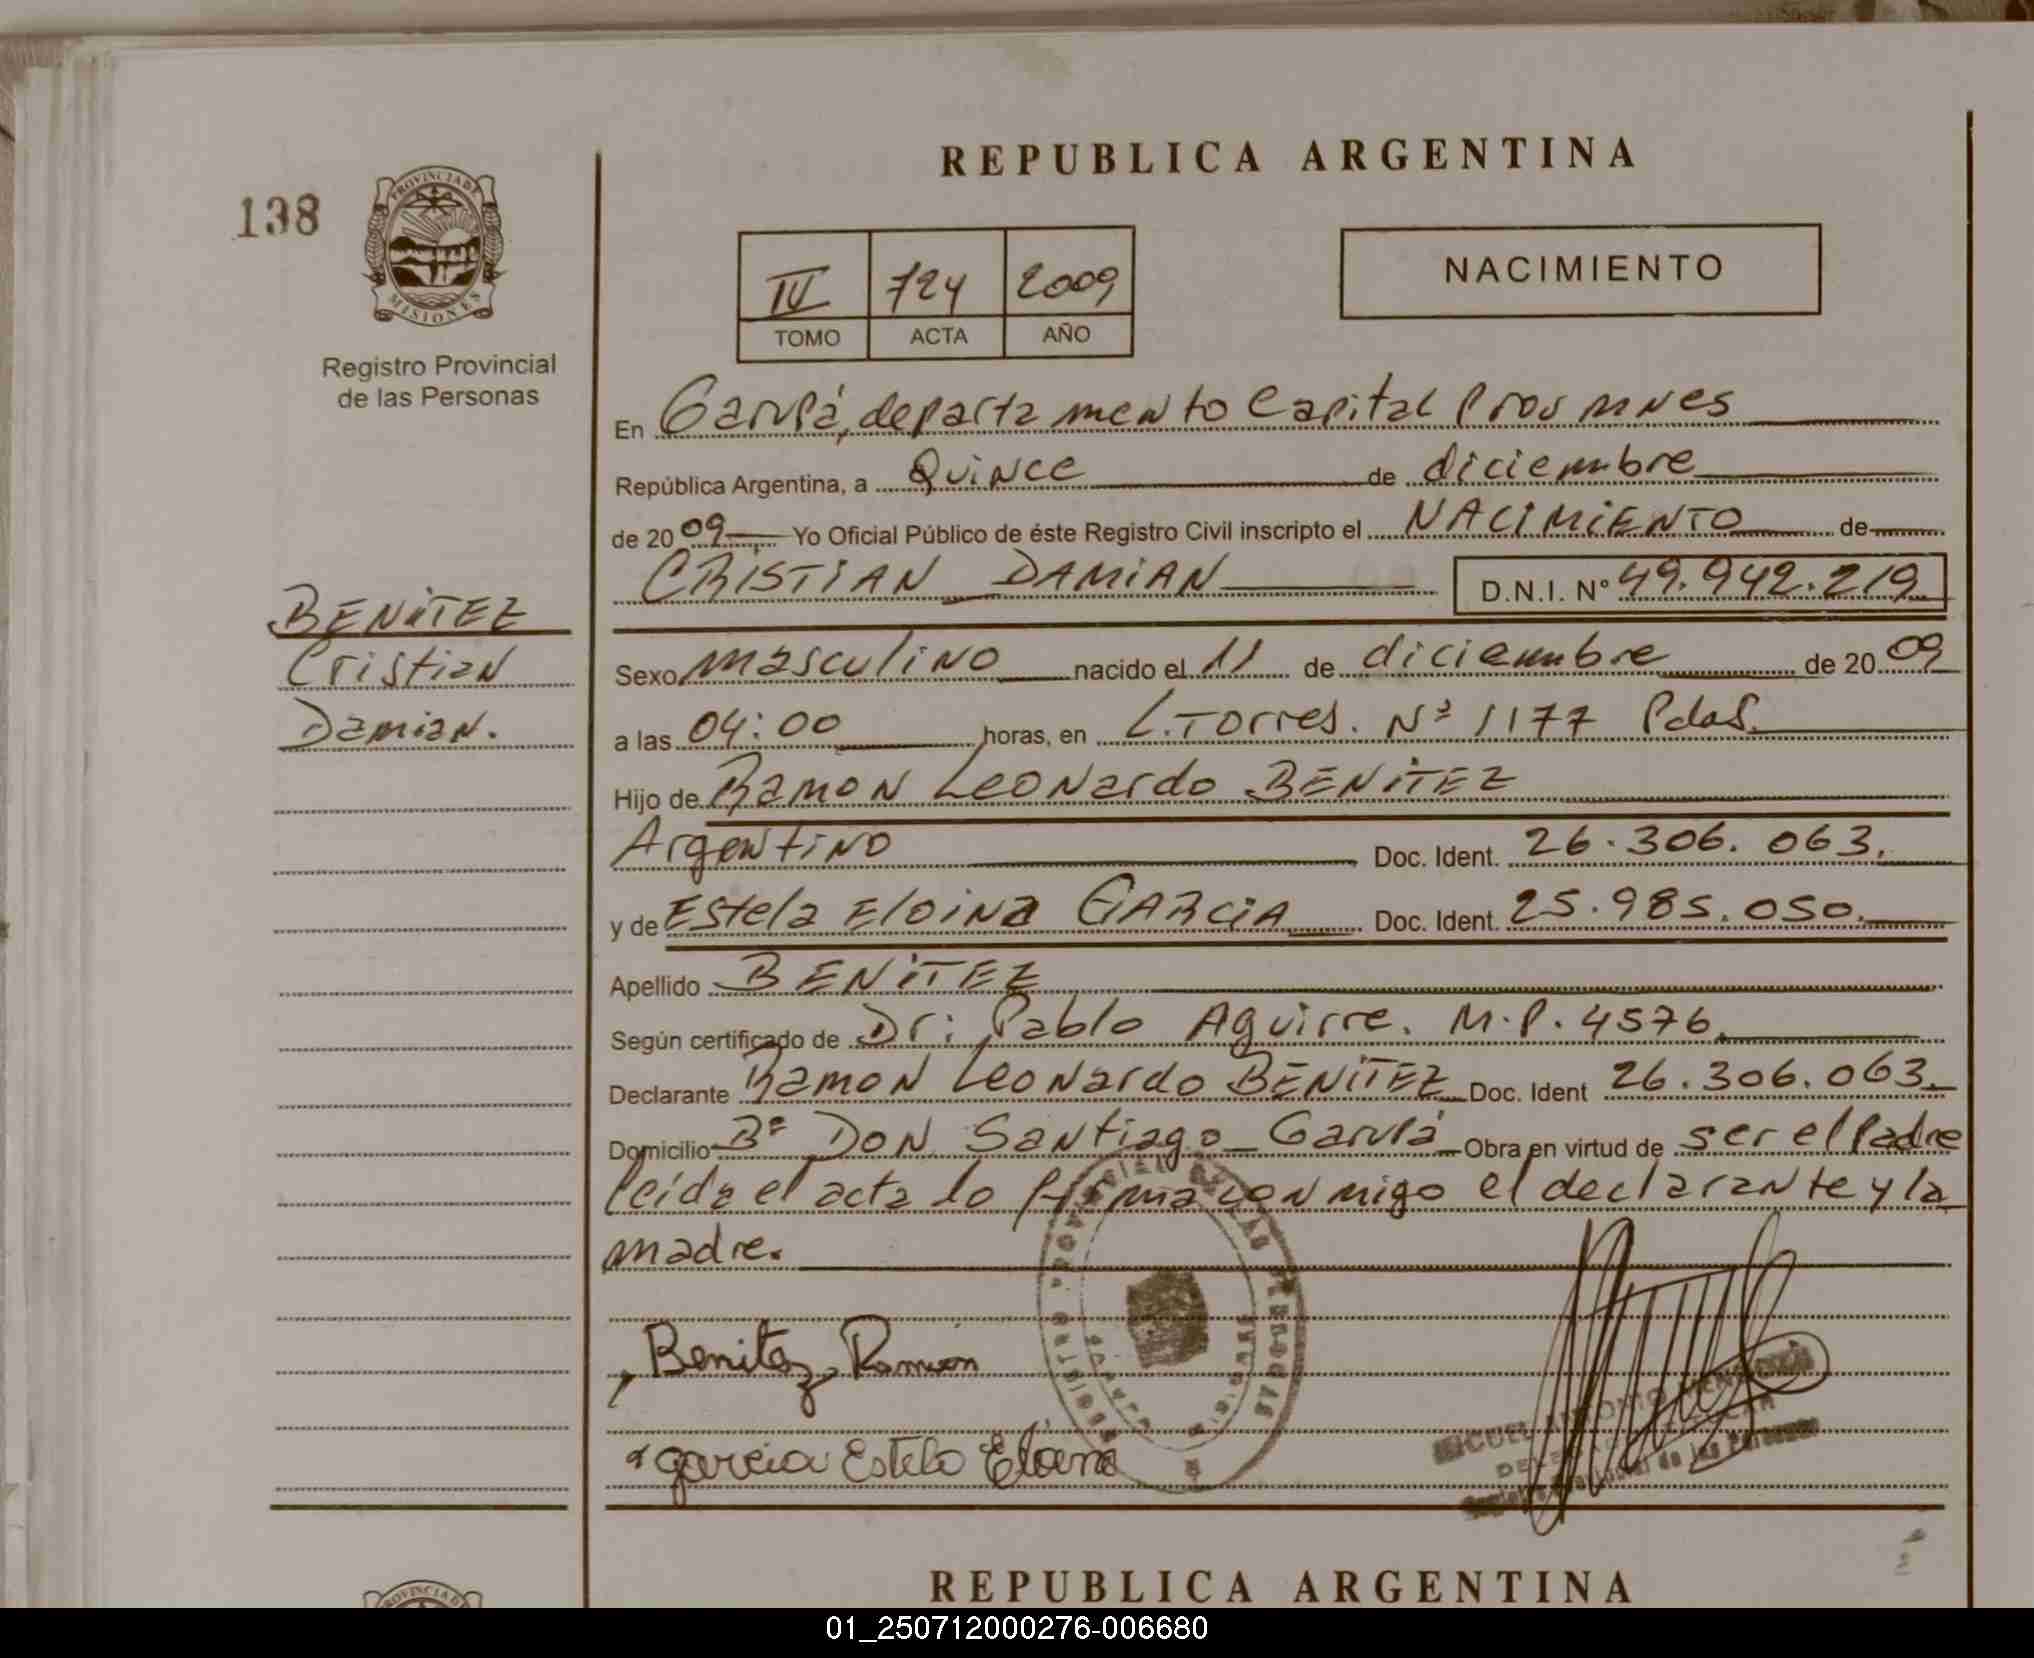 REPUBLICA ARGENTINA
138
PROVINCIA DE
MISIONES
Registro Provincial
de las Personas
IV 724 2009
TOMO ACTA AÑO
NACIMIENTO
En Garupá, departamento Capital Mnes
República Argentina, a Quince de diciembre
de 2009 Yo Oficial Público de éste Registro Civil inscripto el NACIMIENTO de
CRISTIAN DAMIAN D.N.I. Nº 49.942.219
BENITEZ
Cristian
Damian.
Sexo masculino nacido el 11 de diciembre de 2009
a las 04:00 horas, en L. Torres. Nº 1177 Pdas.
Hijo de Ramon Leonardo BENITEZ
Argentino Doc. Ident. 26.306.063.
y de Estela Eloina GARCIA Doc. Ident. 25.985.050.
Apellido BENITEZ
Según certificado de Dr: Pablo Aguirre. M.P. 4576.
Declarante Ramon Leonardo BENITEZ Doc. Ident 26.306.063.
Domicilio Bº DON Santiago - Garupá Obra en virtud de ser el Padre
leida el acta lo firma conmigo el declarante y la
madre.
Benitez Ramon
garcia Estela Eloina
REGISTRO PROVINCIAL DE LAS PERSONAS
GARUPA MISIONES
MIGUEL ANTONIO
Registro Provincial de las Personas
REPUBLICA ARGENTINA
PROVINCIA D
01_250712000276-006680